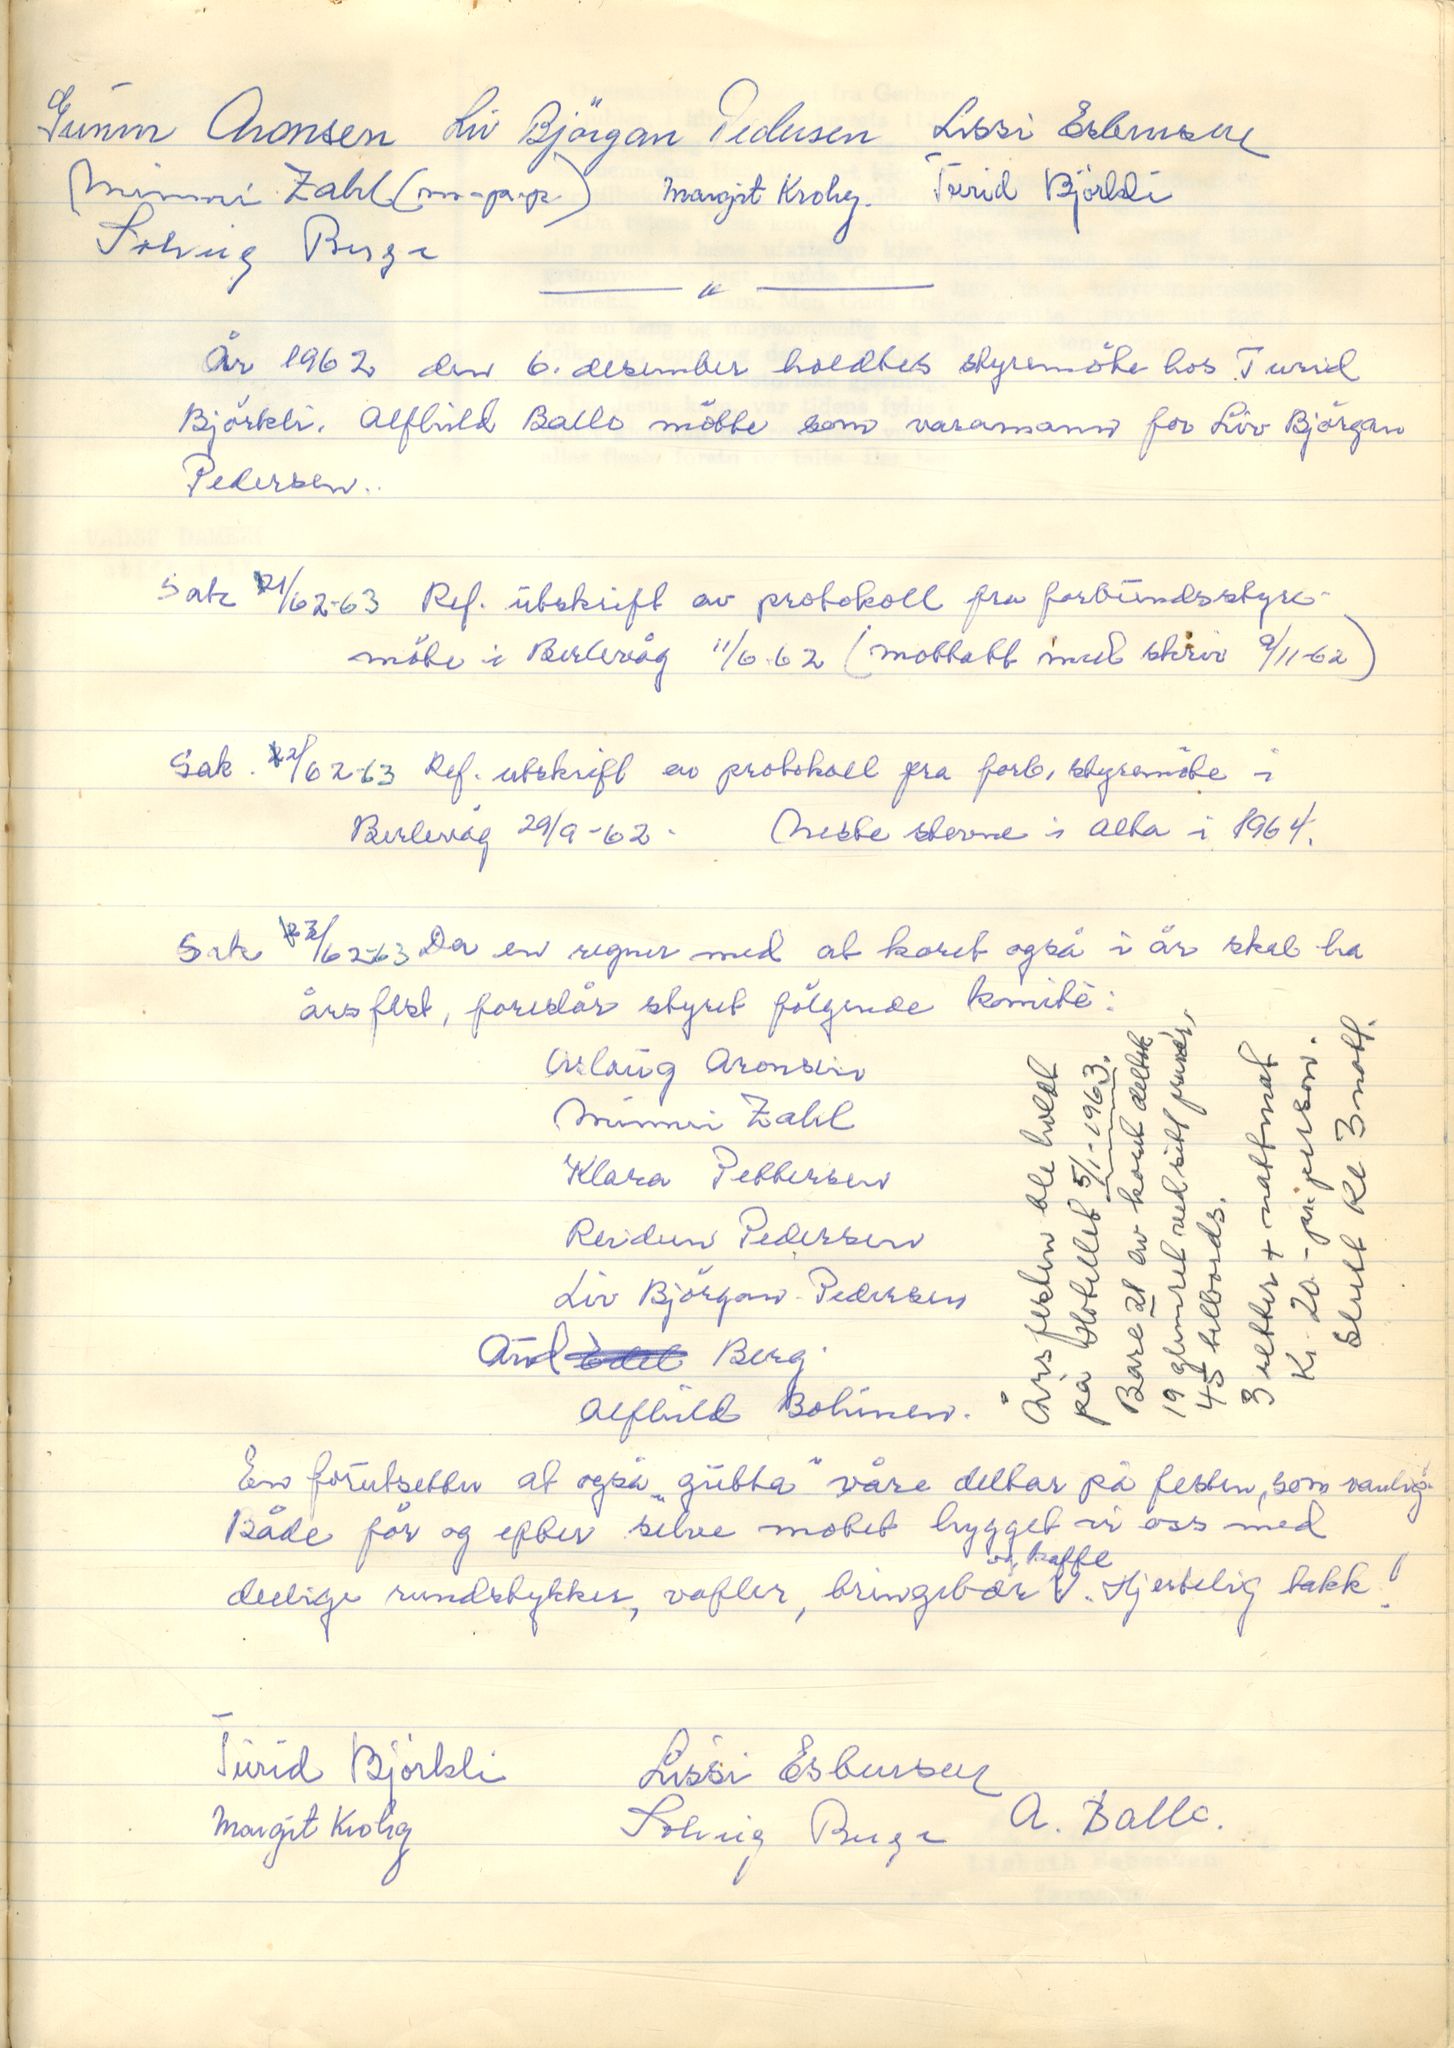 Gunvor Aronsen Liv Björgan Pedersen Lissi Esbensen
Mimmi Zahl (m-p-p.) Margit Krohg. Turid Björkli
Solveig Berge
År 1962 den 6. desember holdtes styremöte hos Turid
Björkli. Alfhild Ballo mötte som varamann for Liv Björgan
Pedersen..
Sak 21/62-63 Ref. utskrift av protokoll fra forbundsstyre-
möte i Berlevåg 11/6-62 (mottatt med skriv 9/11-62)
Sak. 22/62-63 Ref. utskrift av protokoll fra forb. styremöte i
Berlevåg 29/9-62. Neste stevne i Alta i 1964.
Sak 23/62-63 Da en regner med at koret også i år skal ha
årsfest, foreslår styret fölgende komité:
Aslaug Aronsen
Mimmi Zahl
Klara Pettersen
Reidun Pedersen
Liv Björgan Pedersen
Aud Edel Berg
Alfhild Bohinen.
Årsfesten ble holdt
på Hotellet 5/1-1963.
Bare 21 av koret deltok
19 glimret ved sitt fravær,
45 tilbords.
3 retter + nattmat
Kr. 20,- pr. person.
Slutt kl 3 natt.
En forutsetter at også "gutta" våre deltar på festen, som vanlig.
Både för og efter selve mötet hygget vi oss med
deilige rundstykker, vafler, bringebær og kaffe. Hjertelig takk!
Turid Björkli Lissi Esbensen
Margit Krohg Solveig Berge A. Ballo.